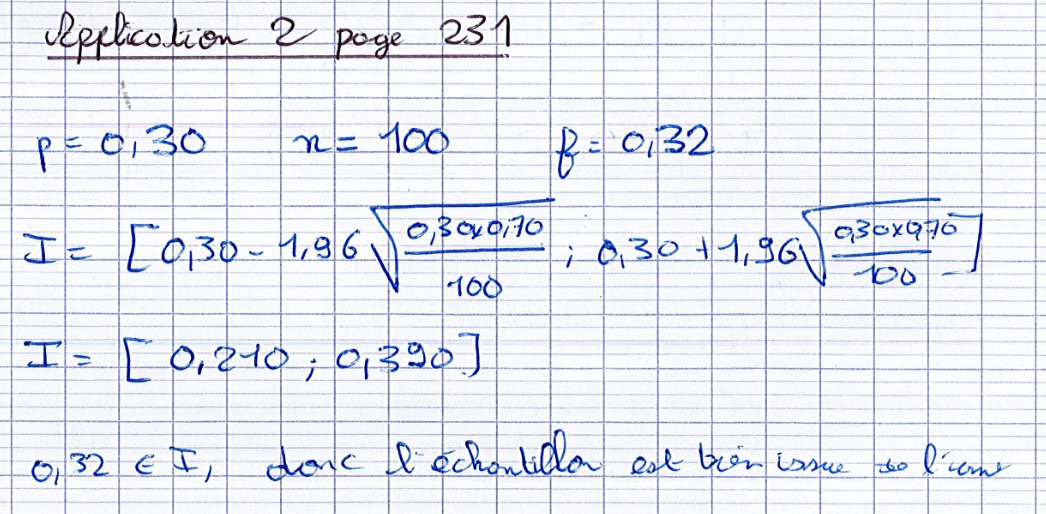 Application 2 page 231
p = 0,30 n = 100 f = 0,32
I = [0,30 - 1,96 √(0,30×0,70/100) ; 0,30 + 1,96 √(0,30×0,70/100)]
I = [0,210 ; 0,390]
0,32 ∈ I, donc l'échantillon est bien issue de l'urne